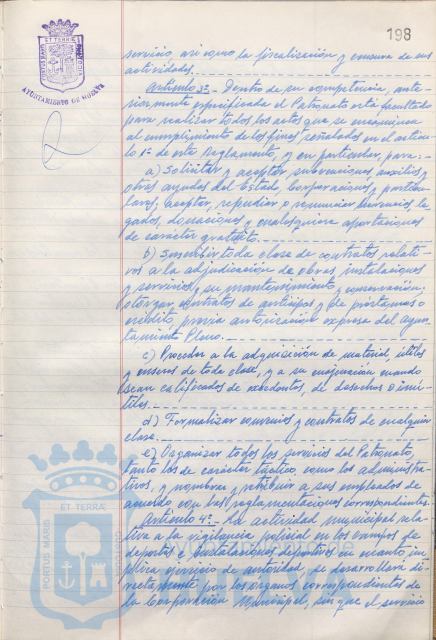 198
AYUNTAMIENTO DE HUELVA
servicio, así como la fiscalización y censura de sus
actividades.
Artículo 3º.- Dentro de su competencia, ante-
riormente especificada el Patronato está facultado
para realizar todos los actos que se encaminen
al cumplimiento de los fines señalados en el artícu-
lo 1º de este Reglamento, y en particular, para:-
a) Solicitar y aceptar subvenciones, auxilios y
otras ayudas del Estado, Corporaciones y particu-
lares, aceptar, repudiar o renunciar herencias, le-
gados, donaciones y cualesquiera aportaciones
de carácter gratuito.
b) Suscribir toda clase de contratos relati-
vos a la adjudicación de obras, instalaciones
y servicios, su mantenimiento y conservación;
otorgar contratos de anticipos y de préstamos o
crédito, previa autorización expresa del Ayun-
tamiento Pleno.
c) Proceder a la adquisición de material, útiles
y enseres de toda clase, y a su enajenación cuando
sean calificados de excedentes, de desechos o inú-
tiles.
d) Formalizar convenios y contratos de cualquier
clase.
e) Organizar todos los servicios del Patronato,
tanto los de carácter táctico, como los administra-
tivos, y nombrar y retribuir a sus empleados de
acuerdo con las reglamentaciones correspondientes.
Artículo 4º.- La actividad municipal rela-
tiva a la vigilancia policial en los campos de
deportes e instalaciones deportivas en cuanto im-
plica ejercicio de autoridad, se desarrollará di-
rectamente por los órganos correspondientes de
la Corporación Municipal, sin que el servicio
ET TERRÆ
PORTUS MARIS
CUSTODIA